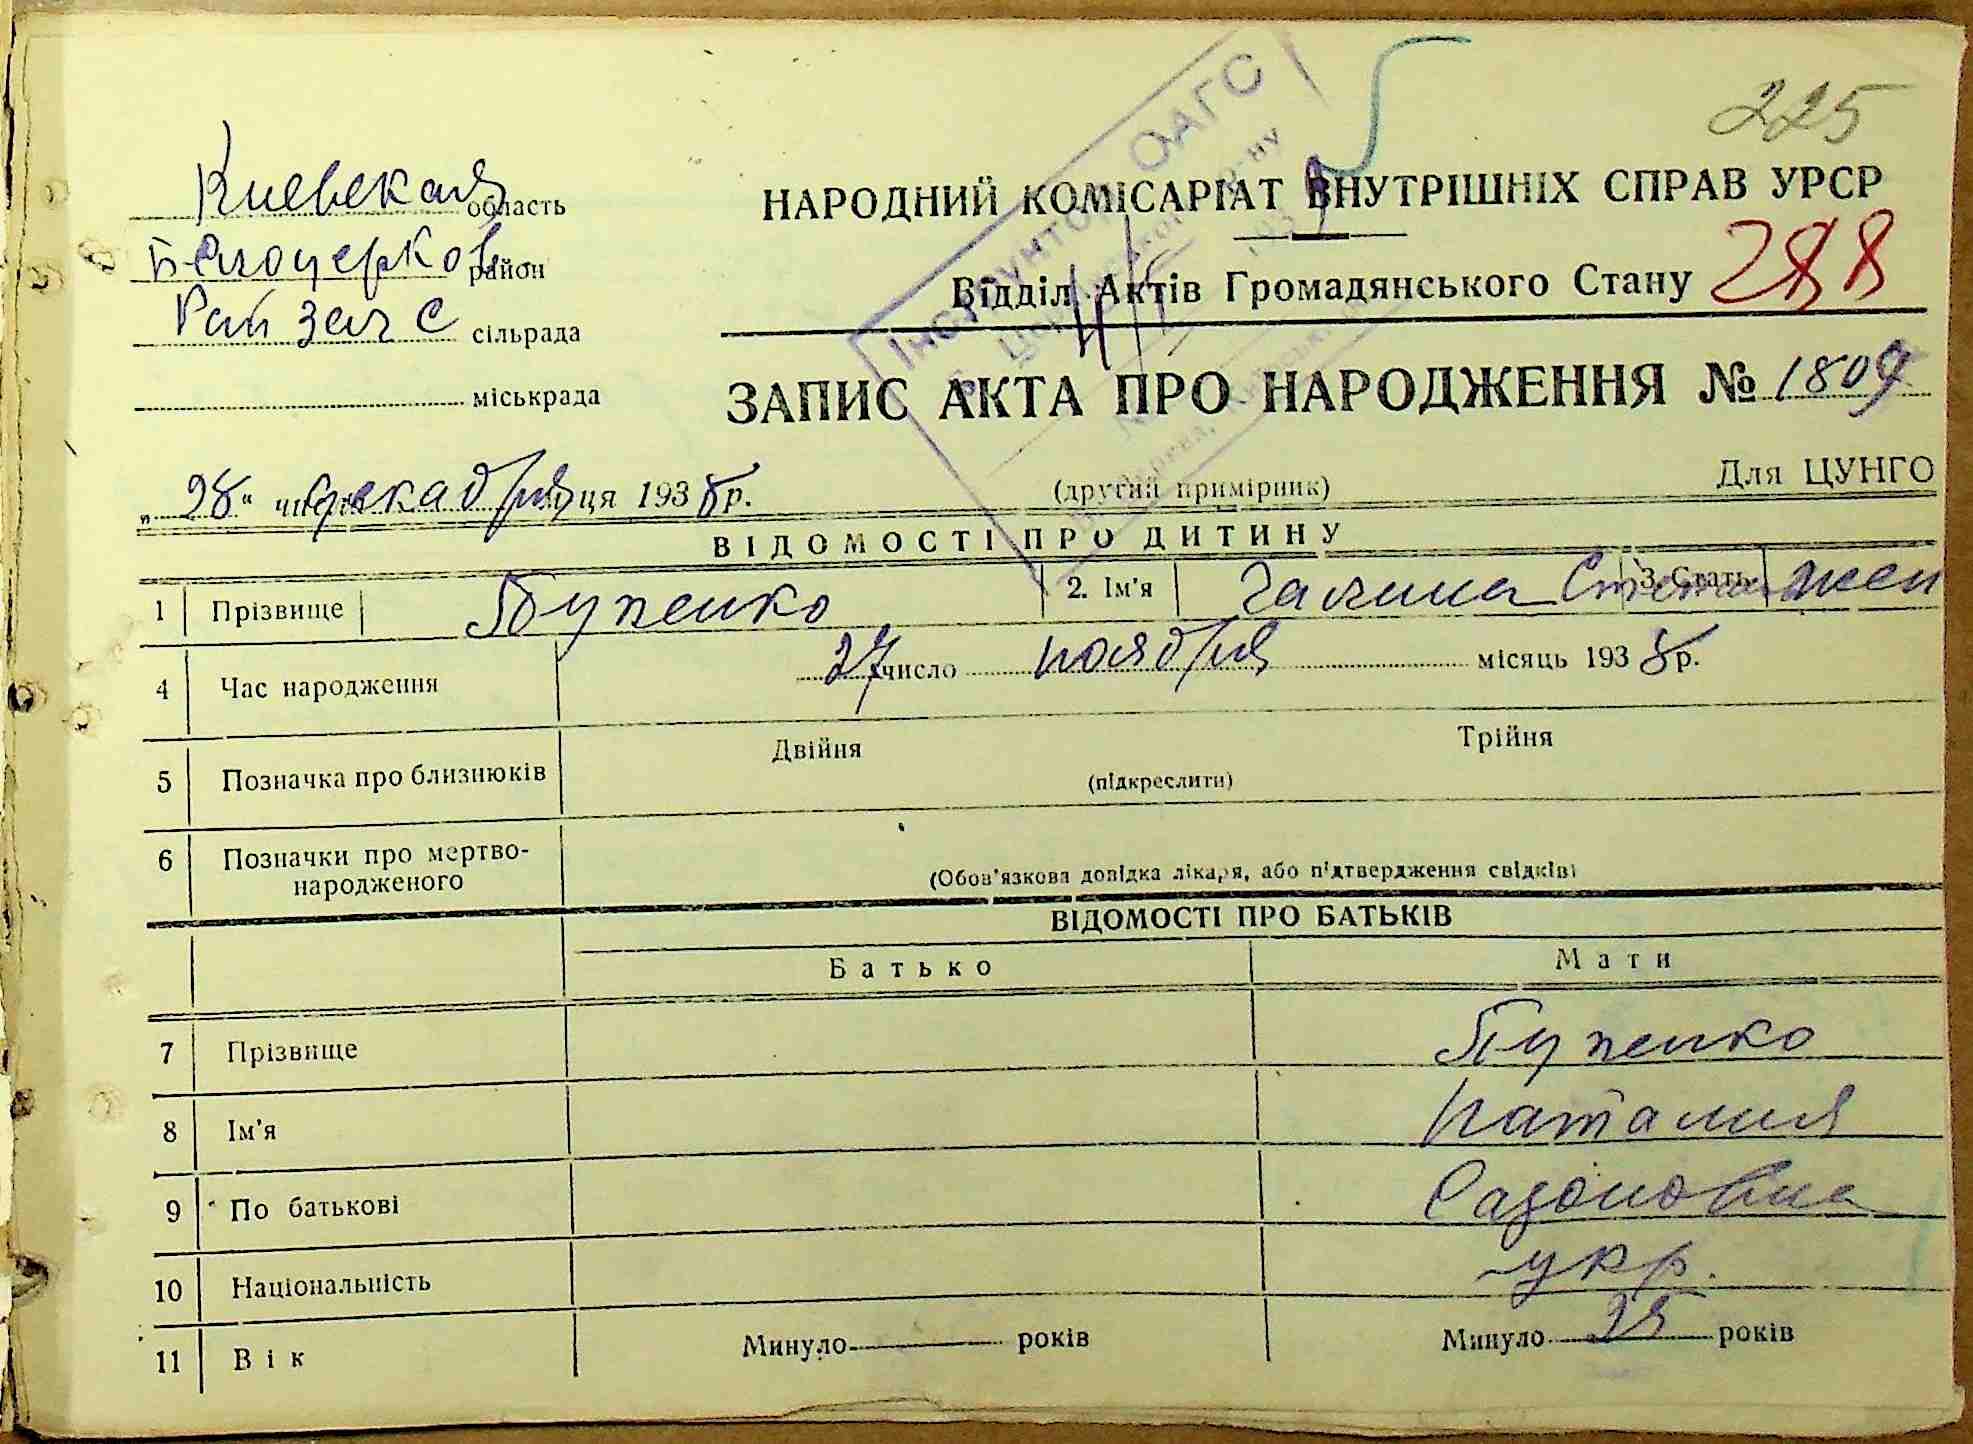 225
Киевская область
НАРОДНИЙ КОМІСАРІАТ ВНУТРІШНІХ СПРАВ УРСР
Белоцерков. район
Відділ Актів Громадянського Стану 288
Рай загс сільрада
міськрада
ЗАПИС АКТА ПРО НАРОДЖЕННЯ № 1809
„28“ числа декабря місяця 1938 р.
(другий примірник)
Для ЦУНГО
ІНСТРУКТОР ОАГС
ВІДОМОСТІ ПРО ДИТИНУ
1 Прізвище Пупенко 2. Ім'я Галина 3. Стать жен
4 Час народження 27 число ноября місяць 1938 р.
5 Позначка про близнюків Двійня Трійня
(підкреслити)
6 Позначки про мертво-
народженого
(Обов'язкова довідка лікаря, або підтвердження свідків)
ВІДОМОСТІ ПРО БАТЬКІВ
Батько Мати
7 Прізвище Пупенко
8 Ім'я Наталия
9 По батькові Сазоновна
10 Національність укр.
11 Вік Минуло років Минуло 25 років